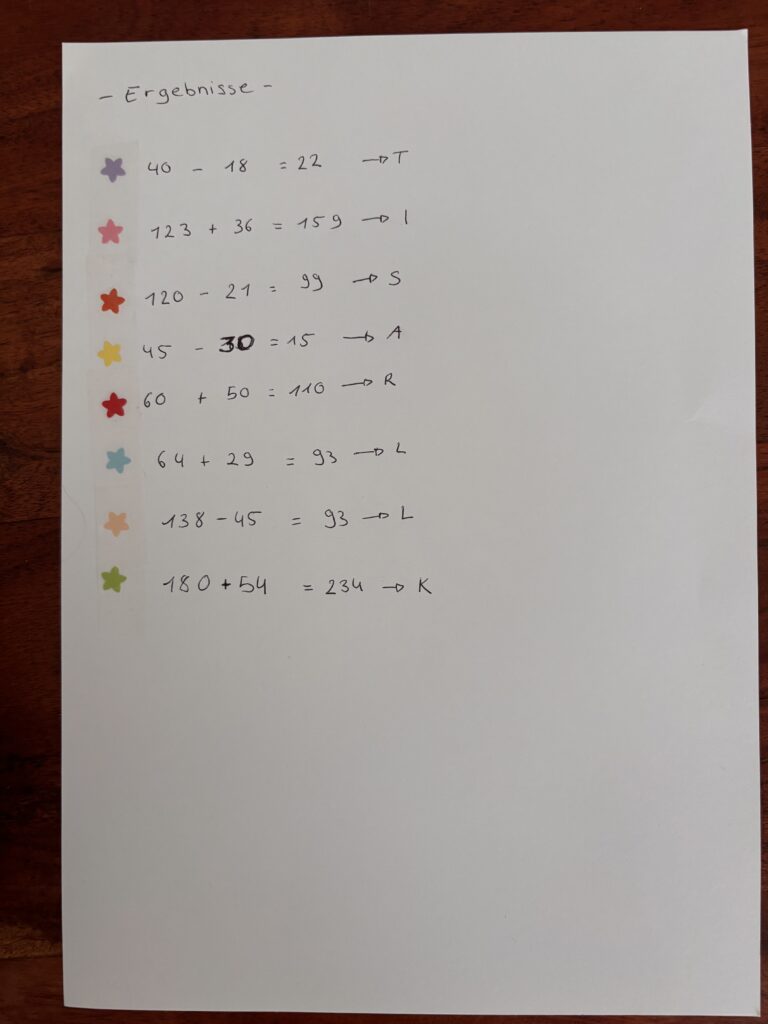 - Ergebnisse -
40 - 18 = 22 → T
123 + 36 = 159 → I
120 - 21 = 99 → S
45 - 30 = 15 → A
60 + 50 = 110 → R
64 + 29 = 93 → L
138 - 45 = 93 → L
180 + 54 = 234 → K